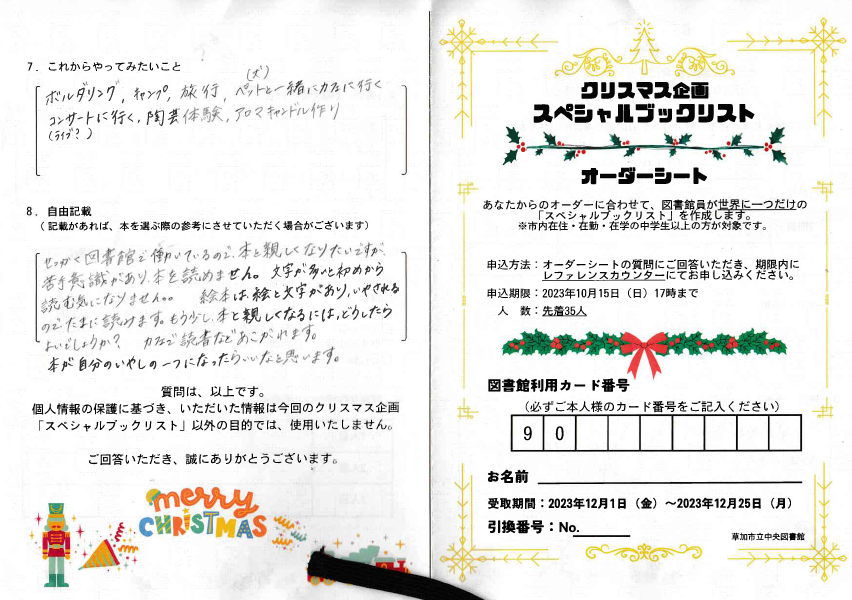 7．これからやってみたいこと
(犬)
ボルダリング，キャンプ，旅行，ペットと一緒にカフェに行く
コンサートに行く，陶芸体験，アロマキャンドル作り
(ライブ？)
8．自由記載
（記載があれば、本を選ぶ際の参考にさせていただく場合がございます）
せっかく図書館で働いているので、本と親しくなりたいですが、
苦手意識があり、本を読めません。文字が多いと初めから
読む気になりません。。 絵本は、絵と文字があり、いやされる
のでたまに読めます。もう少し、本と親しくなるには、どうしたら
よいでしょうか？ カフェで読書などあこがれます。
本が自分のいやしの一つになったらいいなと思います。
質問は、以上です。
個人情報の保護に基づき、いただいた情報は今回のクリスマス企画
「スペシャルブックリスト」以外の目的では、使用いたしません。
ご回答いただき、誠にありがとうございます。
merry
CHRISTMAS
クリスマス企画
スペシャルブックリスト
オーダーシート
あなたからのオーダーに合わせて、図書館員が世界に一つだけの
「スペシャルブックリスト」を作成します。
※市内在住・在勤・在学の中学生以上の方が対象です。
申込方法：オーダーシートの質問にご回答いただき、期限内に
レファレンスカウンターにてお申し込みください。
申込期限：2023年10月15日（日）17時まで
人　数：先着35人
図書館利用カード番号
（必ずご本人様のカード番号をご記入ください）
9 0
お名前
受取期間：2023年12月1日（金）～2023年12月25日（月）
引換番号：No.
草加市立中央図書館